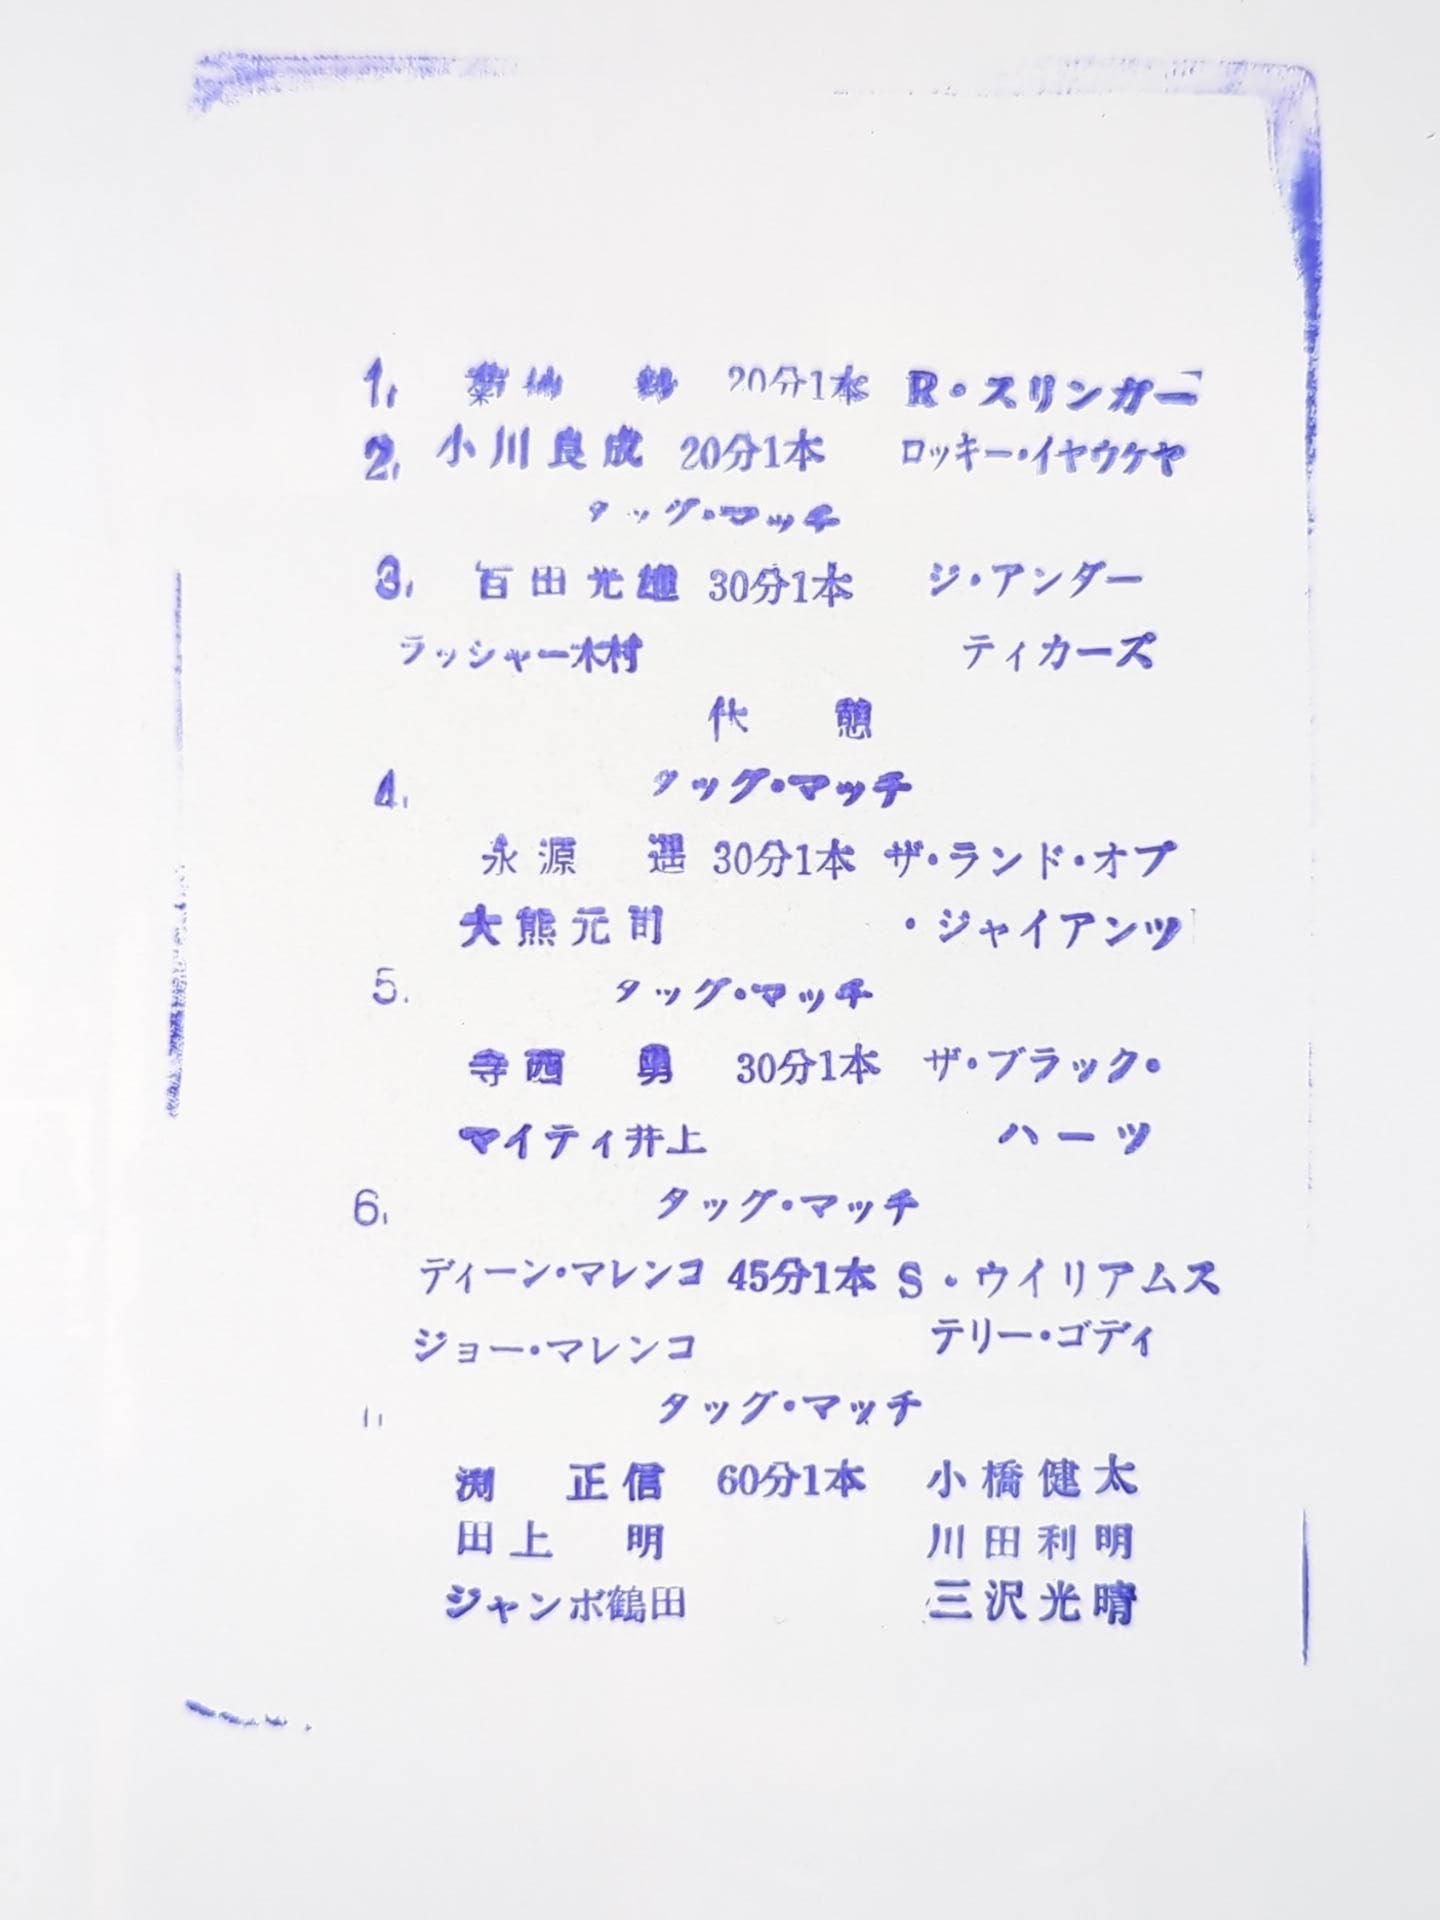 1. 菊地 毅 20分1本 R・スリンガー
2. 小川良成 20分1本 ロッキー・イヤウケヤ
タッグ・マッチ
3. 百田光雄 30分1本 ジ・アンダー
ラッシャー木村 ティカーズ
休 憩
4. タッグ・マッチ
永源 遥 30分1本 ザ・ランド・オブ
大熊元司 ・ジャイアンツ
5. タッグ・マッチ
寺西 勇 30分1本 ザ・ブラック・
マイティ井上 ハーツ
6. タッグ・マッチ
ディーン・マレンコ 45分1本 S・ウイリアムス
ジョー・マレンコ テリー・ゴディ
タッグ・マッチ
渕 正信 60分1本 小橋健太
田上 明 川田利明
ジャンボ鶴田 三沢光晴